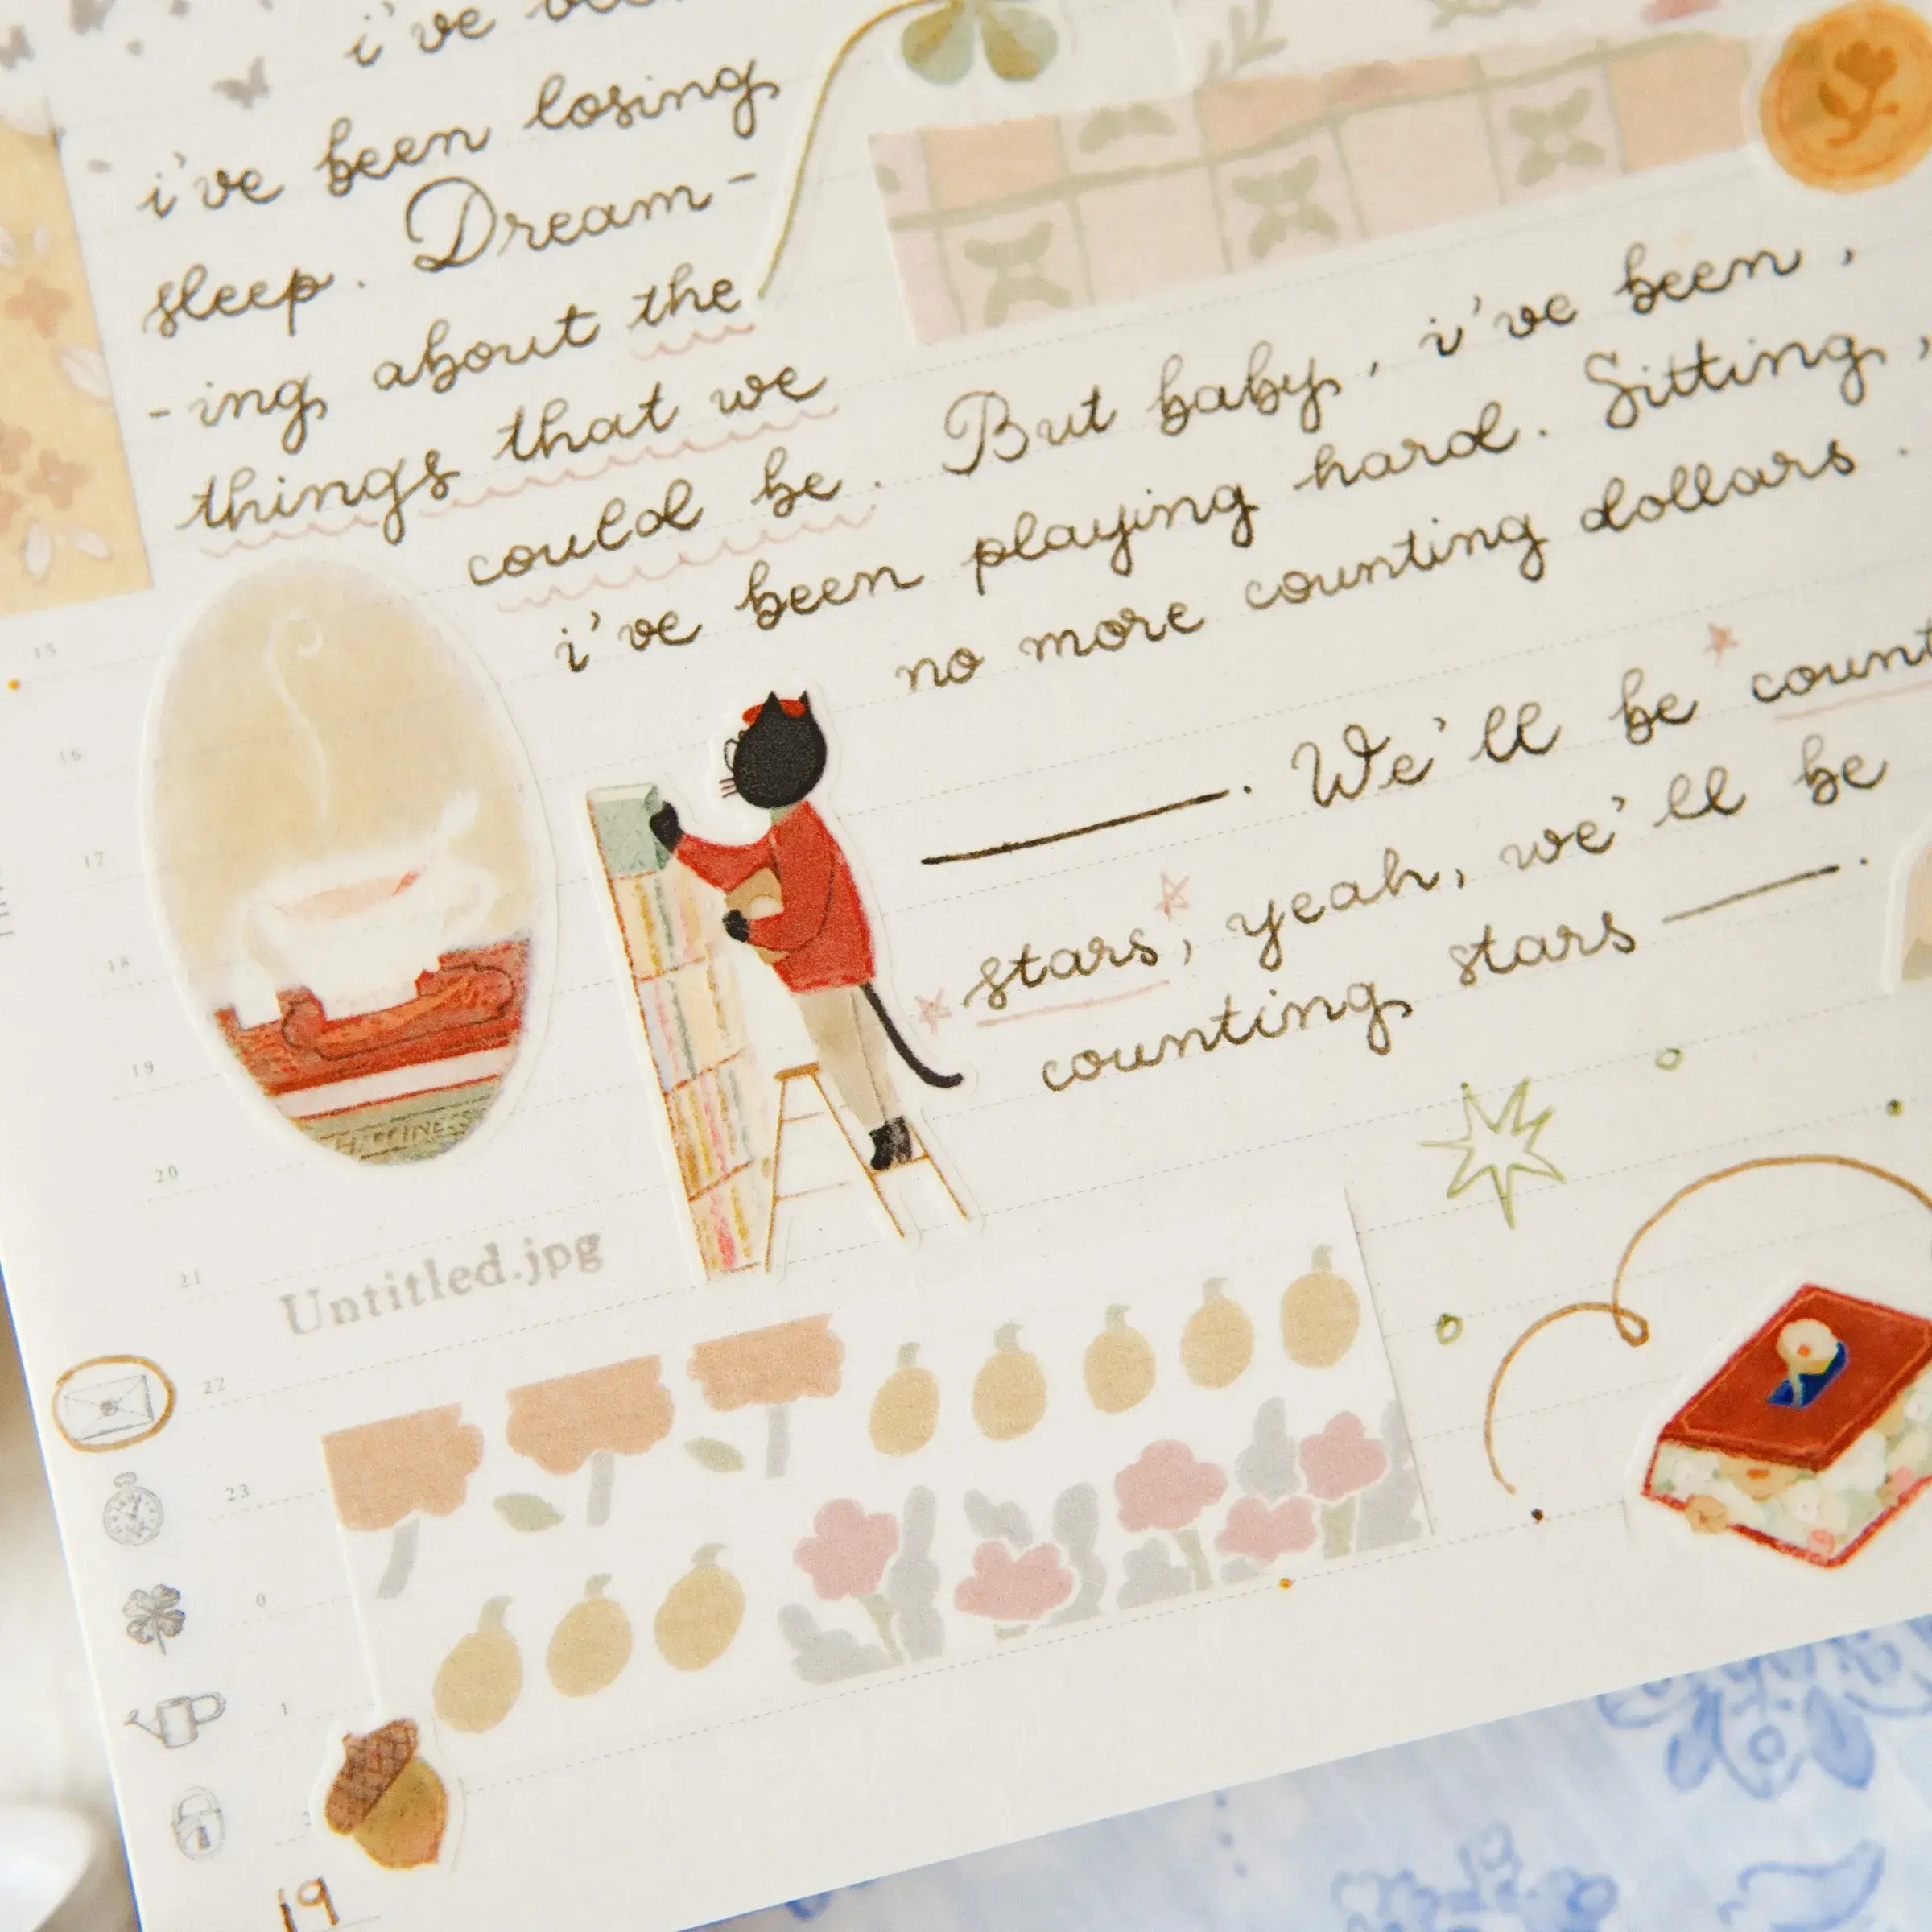 i've
i've been losing
sleep. Dream-
-ing about the
things that we
could be. But baby, i've been,
i've been playing hard. Sitting,
no more counting dollars.
. We'll be count
stars, yeah, we'll be
counting stars
15
16
17
18
19
20
21
Untitled.jpg
22
23
0
1
19